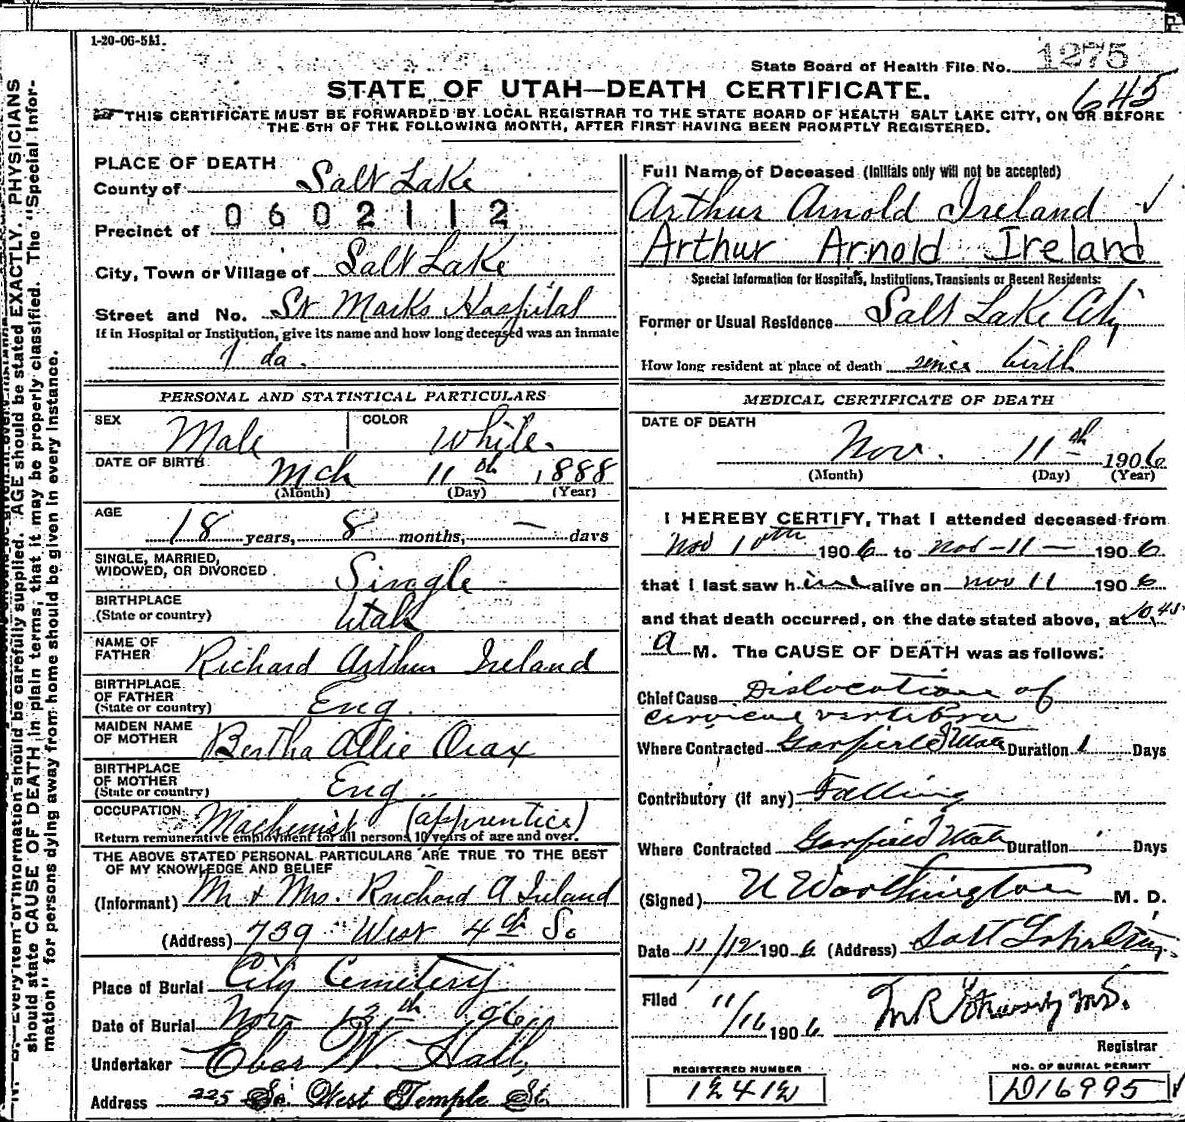 1-20-06-5M.
State Board of Health File No. 1275
STATE OF UTAH—DEATH CERTIFICATE.
645
THIS CERTIFICATE MUST BE FORWARDED BY LOCAL REGISTRAR TO THE STATE BOARD OF HEALTH SALT LAKE CITY, ON OR BEFORE
THE 5TH OF THE FOLLOWING MONTH, AFTER FIRST HAVING BEEN PROMPTLY REGISTERED.
PLACE OF DEATH
County of Salt Lake
0602112
Precinct of
City, Town or Village of Salt Lake
Street and No. St Marks Hospital
If in Hospital or Institution, give its name and how long deceased was an inmate
1 da.
PERSONAL AND STATISTICAL PARTICULARS
SEX Male COLOR White.
DATE OF BIRTH Mch 11th 1888
(Month) (Day) (Year)
AGE
18 years, 8 months, — days
SINGLE, MARRIED,
WIDOWED, OR DIVORCED Single
BIRTHPLACE
(State or country) Utah
NAME OF
FATHER Richard Arthur Ireland
BIRTHPLACE
OF FATHER
(State or country) Eng.
MAIDEN NAME
OF MOTHER Bertha Allie
BIRTHPLACE
OF MOTHER
(State or country) Eng.
OCCUPATION Machinist (apprentice)
Return remunerative employment for all persons 10 years of age and over.
THE ABOVE STATED PERSONAL PARTICULARS ARE TRUE TO THE BEST
OF MY KNOWLEDGE AND BELIEF
(Informant) M + Mrs. Richard A Ireland
(Address) 739 West 4th So
Place of Burial City Cemetery
Date of Burial Nov 13th 1906
Undertaker Eber W. Hall
Address 225 So West Temple St.
Full Name of Deceased (Initials only will not be accepted)
Arthur Arnold Ireland ✓
Arthur Arnold Ireland
Special Information for Hospitals, Institutions, Transients or Recent Residents:
Former or Usual Residence Salt Lake City
How long resident at place of death since birth
MEDICAL CERTIFICATE OF DEATH
DATE OF DEATH
Nov. 11th 1906
(Month) (Day) (Year)
I HEREBY CERTIFY, That I attended deceased from
Nov 10th 1906 to Nov - 11 — 1906
that I last saw him alive on Nov 11 1906
and that death occurred, on the date stated above, at 10.45
A M. The CAUSE OF DEATH was as follows:
Chief Cause Dislocation of
cervical vertebra
Where Contracted Garfield Utah Duration 1 Days
Contributory (if any) Falling
Where Contracted Garfield Utah Duration Days
(Signed) U Worthington M. D.
Date 11/12 1906 (Address) Salt Lake City
Filed 11/16 1906 M.D.
Registrar
REGISTERED NUMBER
12412
NO. OF BURIAL PERMIT
D16995
N. B.—Every item of information should be carefully supplied. AGE should be stated EXACTLY. PHYSICIANS
should state CAUSE OF DEATH in plain terms, that it may be properly classified. The "Special Infor-
mation" for persons dying away from home should be given in every instance.